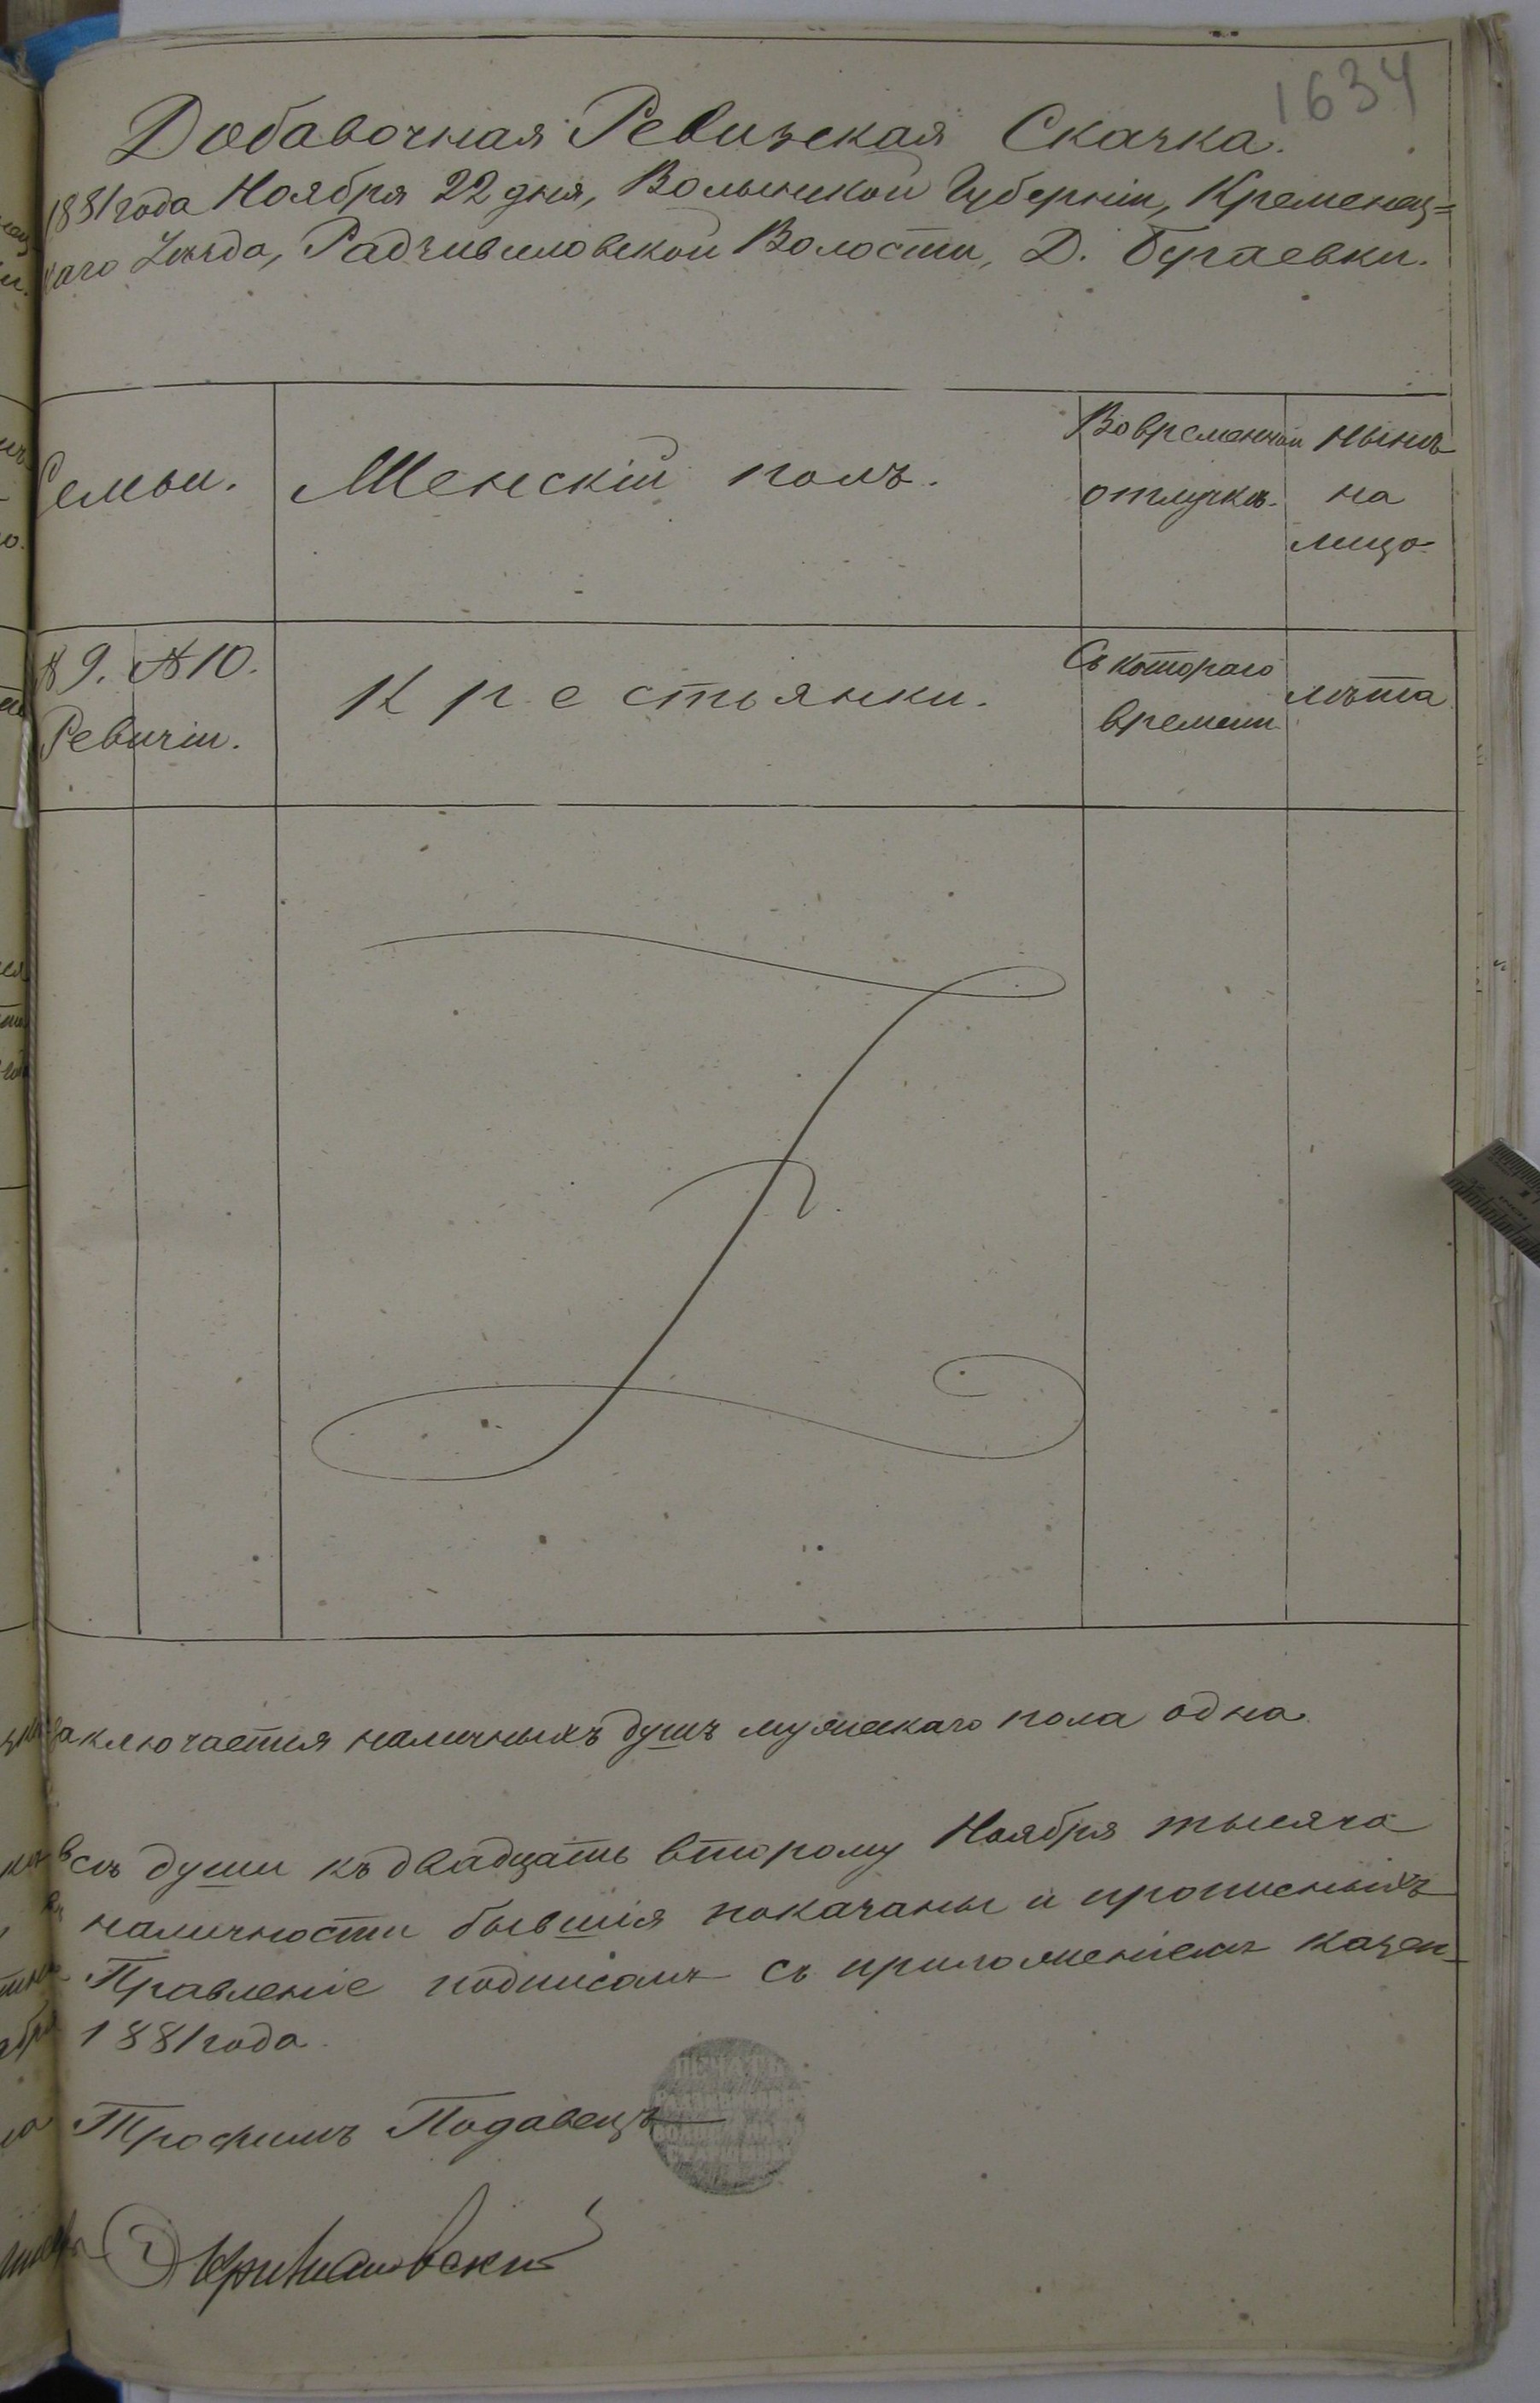 1634
Добавочная Ревизская Сказка.
1881 года Ноября 22 дня, Волынской Губерніи, Кременец=
каго Уѣзда, Радзивиловской Волости, Д. Бугаевки.
Семьи. Женскій полъ. Во временной отлучкѣ. Нынѣ на лицо
№ 9. № 10. Ревизіи. Крестьянки. Съ котораго времени лѣта
заключается наличныхъ душъ мужескаго пола одна
всѣ души къ двадцать второму Ноября тысяча
наличности бывшія показаны и прописныхъ
Правленіе подписомъ съ приложеніемъ казен-
1881 года.
Трофимъ Подавецъ